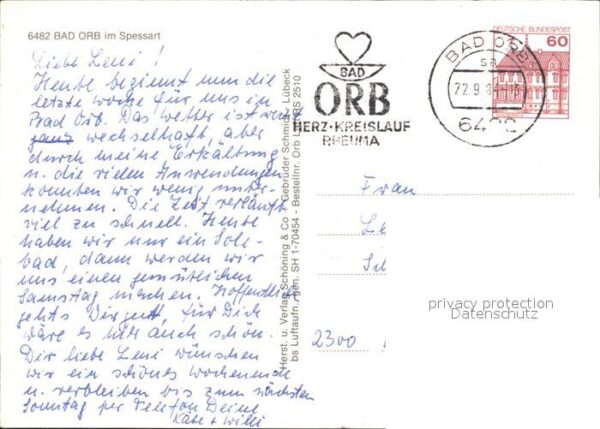 6482 BAD ORB im Spessart
Liebe Leni!
Heute beginnt nun die
letzte Woche für uns in
Bad Orb. Das Wetter ist
ganz wechselhaft, aber
durch meine Erkältung
u. die vielen Anwendungen
konnten wir wenig unter-
nehmen. Die Zeit verläuft
viel zu schnell. Heute
haben wir nur ein Sole-
bad, dann werden wir
uns einen gemütlichen
Samstag machen. Hoffentlich
gehts Dir gut, für Dich
wäre es hier auch schön.
Dir liebe Leni wünschen
wir ein schönes Wochenende
u. verbleiben bis zum nächsten
Sonntag per Telefon Deine
Käte + Willi
Herst. u. Verlag Schöning & Co · Gebrüder Schmidt, Lübeck
bs Luftaufn. gen. SH 1-70454 - Bestellnr. Orb L RS 2510
BAD
ORB
HERZ-KREISLAUF
RHEUMA
BAD ORB
sa
22.9.8
DEUTSCHE BUNDESPOST
60
Frau
2300
privacy protection
Datenschutz